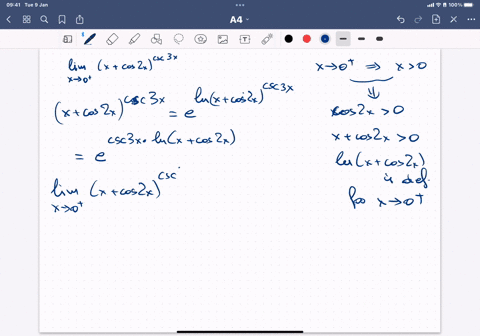 09:41 Tue 9 Jan
A4
lim (x+cos2x)^csc3x
x→0⁺
(x+cos2x)^csc3x = e^ln(x+cos2x)^csc3x
= e^csc3x·ln(x+cos2x)
lim (x+cos2x)^csc
x→0⁺
x→0⁺ ⇒ x>0
⇓
cos2x>0
x+cos2x>0
ln(x+cos2x)
is def.
for x→0⁺